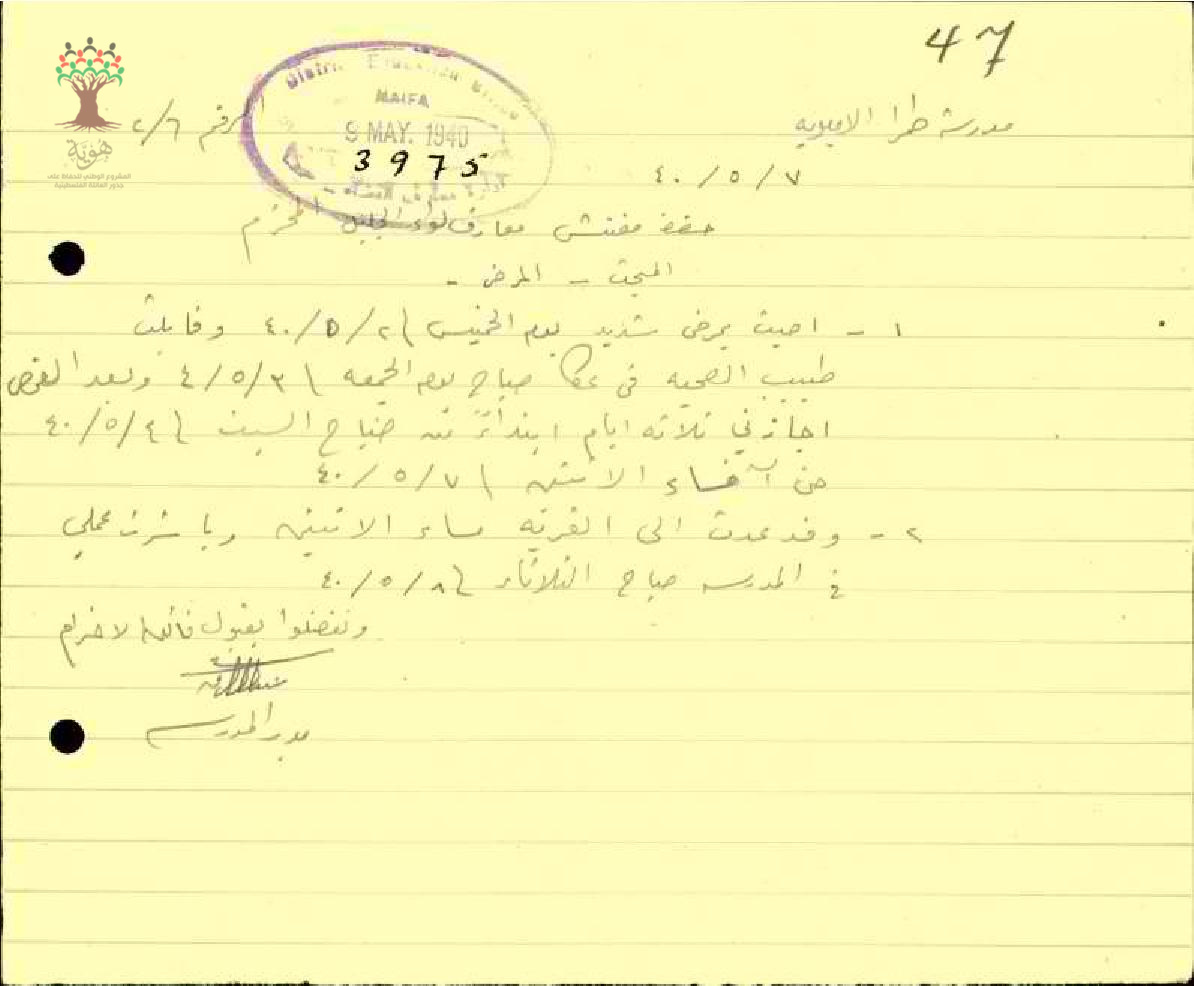 47
مدرسة طمرا الاميرية
الرقم ٢/٦
District Education Office
HAIFA
9 MAY. 1940
3975
ادارة معارف القضاء
٤٠/٥/٧
حضرة مفتش معارف لواء الجليل المحترم
المبحث - المرض -
١ - اصبت بمرض شديد يوم الخميس ٤٠/٥/٢ وقابلت
طبيب الصحيه في عكا صباح يوم الجمعه ٤/٥/٣ وبعد الفحص
اجازني ثلاثه ايام ابتداءً من صباح السبت ٤٠/٥/٤
مساء الاثنين ٤٠/٥/٧
٢ - وقد عدت الى القريه مساء الاثنين وباشرت عملي
في المدرسه صباح الثلاثاء ٤٠/٥/٨
وتفضلوا بقبول فائق الاحترام
مدير المدرسه
هوية
المشروع الوطني للحفاظ على
جذور العائلة الفلسطينية